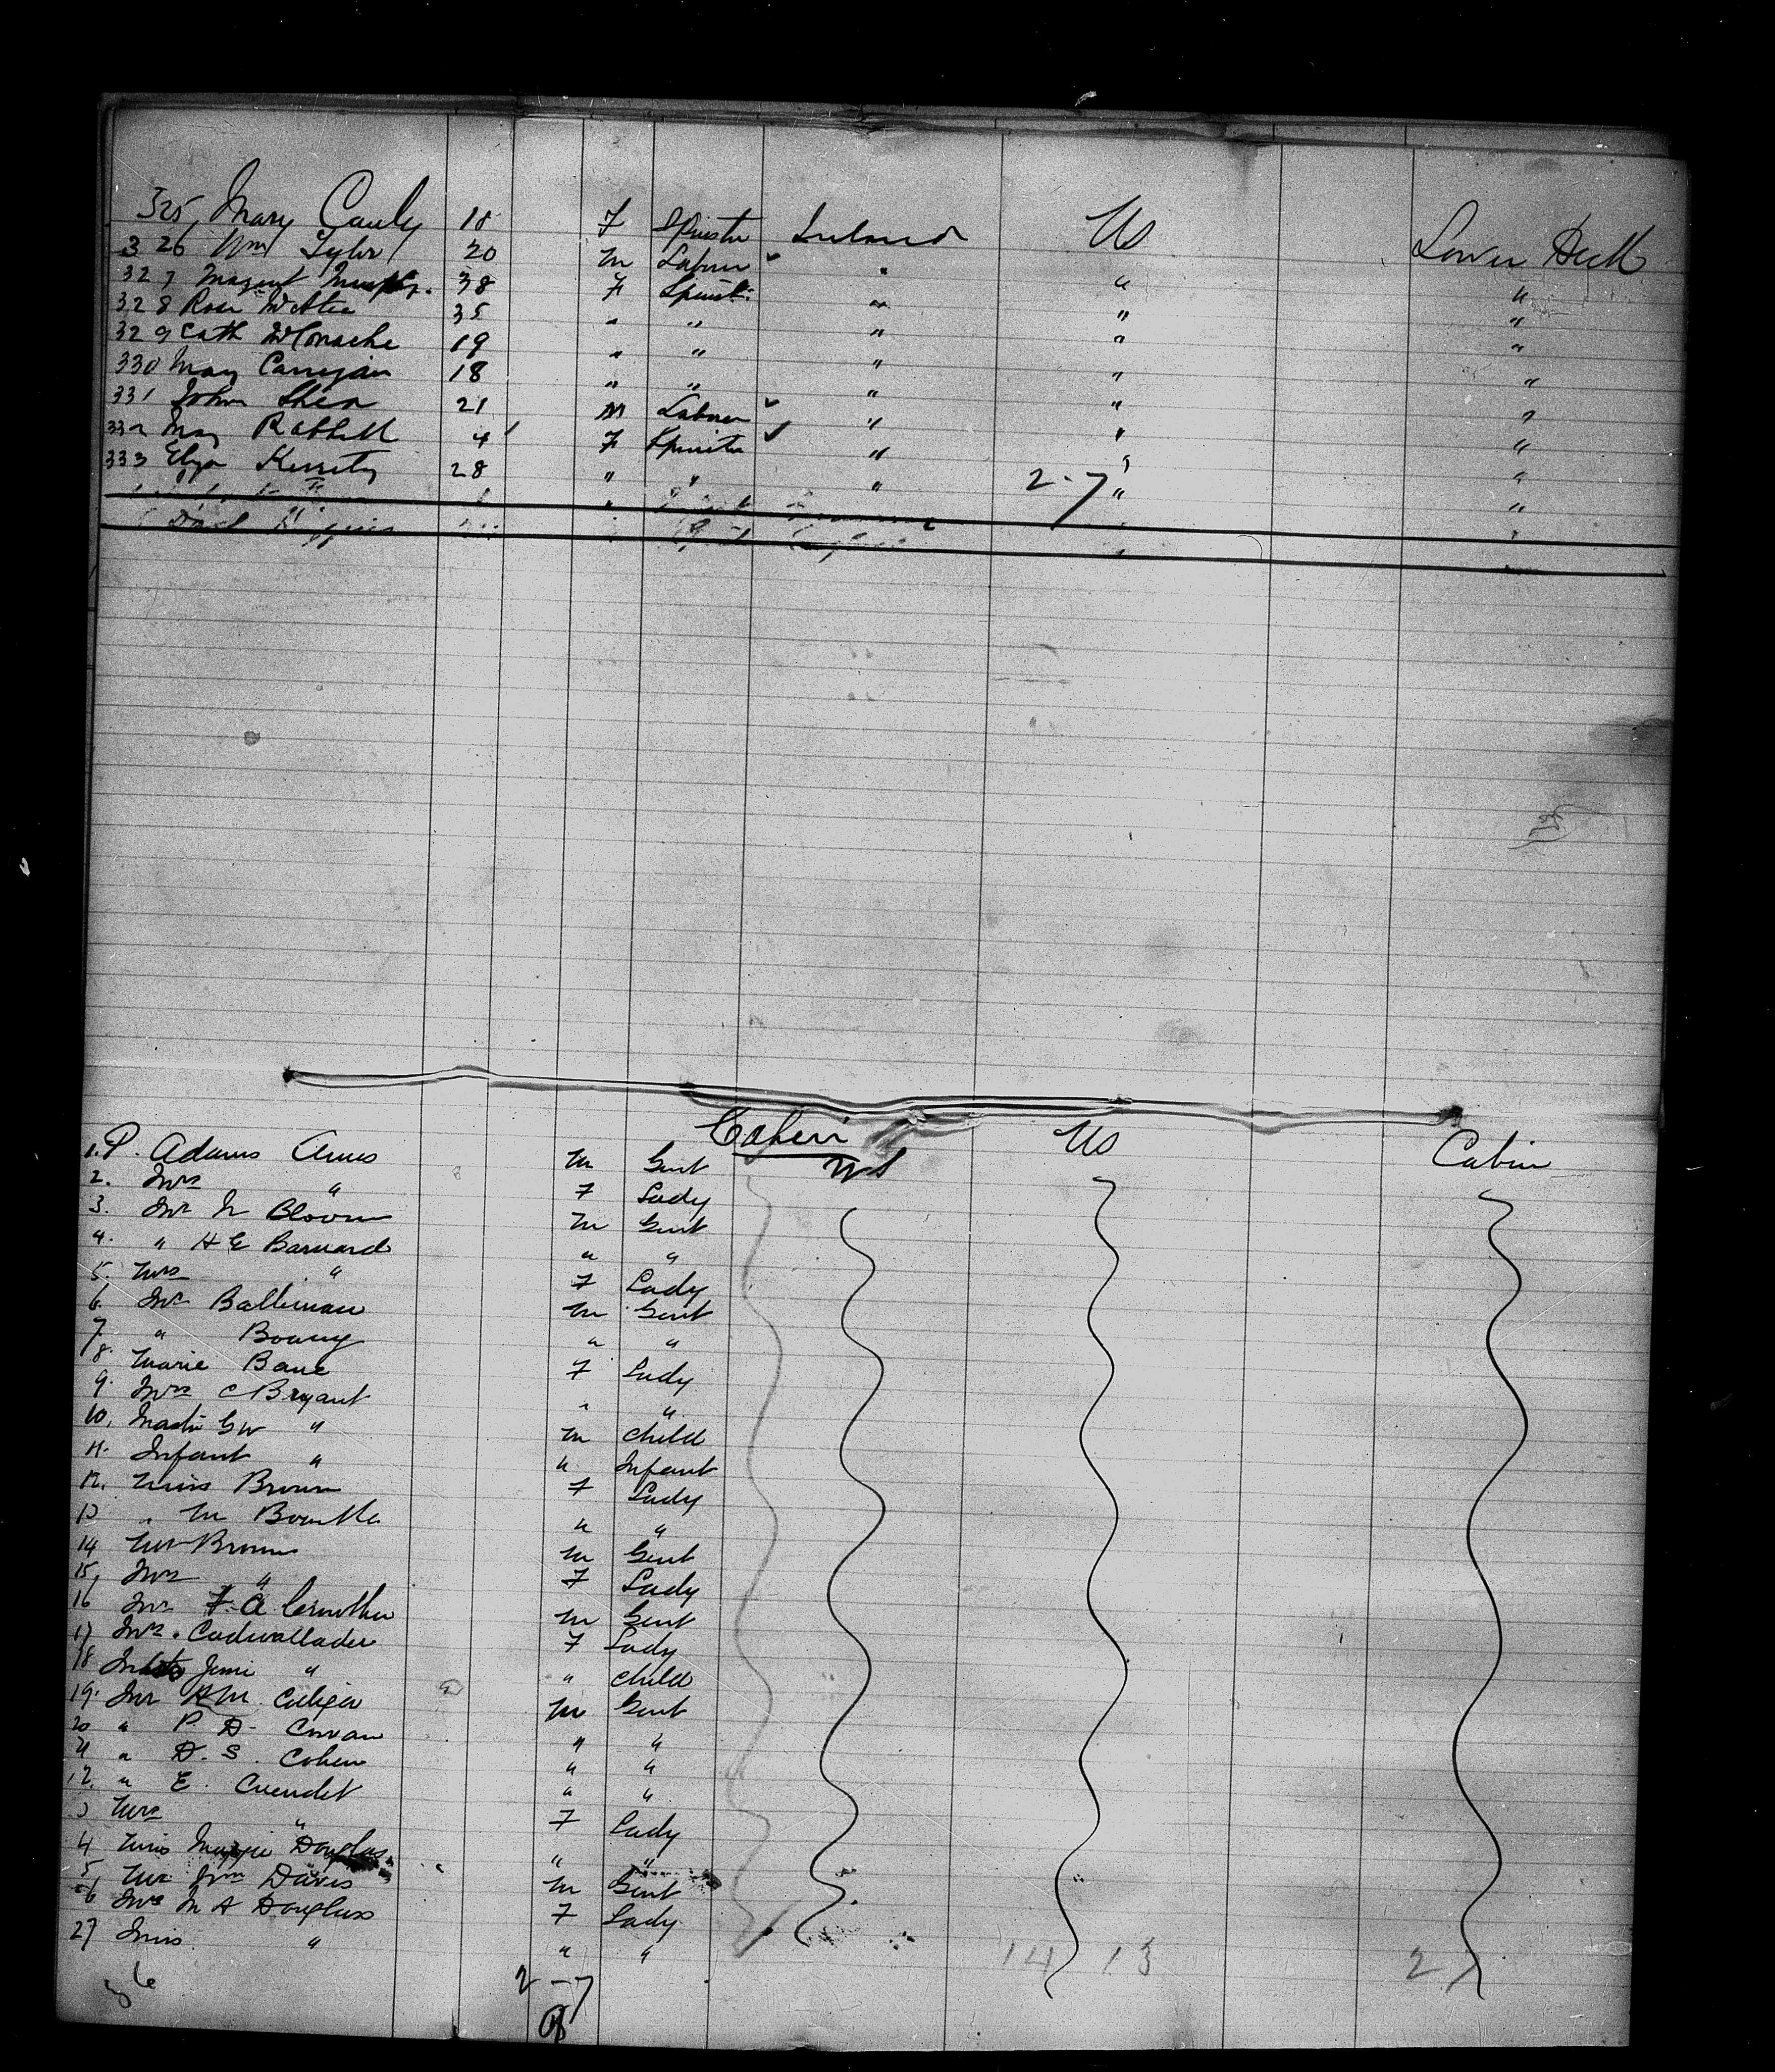 325 Mary Cauly 18 F Spinster Ireland US Lower Deck
326 Wm Tyler 20 M Laborer " " "
327 Margaret Murphy 38 F Spinst: " " "
328 Rose McAtee 35 " " " " "
329 Cath 19 " " " " "
330 Mary Carrigan 18 " " " " "
331 John Shea 21 M Laborer " " "
332 May 4 F Spinster " " "
333 Eliza 28 " " " " "
2-7
Cabin
1. P. Adams Ames M Gent US US Cabin
2. Mrs " F Lady
3. Mr N Bloom M Gent
4. " H E Barnard " "
5. Mrs " F Lady
6. Mr M Gent
7. " " "
8. Marie Bane F Lady
9. Mrs C Bryant " "
10. G W " M Child
11. Infant " " Infant
12. Miss Brown F Lady
13 " M " "
14 Mr Brown M Gent
15, Mrs " F Lady
16 Mr F. A. M Gent
17 Mrs. Cadwallader F Lady
18 " " Child
19. Mr M Gent
20 " P. D. " "
21 " D. S. Cohen " "
12. " E. Cuendet " "
3 Mrs " F Lady
4 Miss Maggie Douglas " "
5 Mr Wm Davis M Gent
6 Mrs M A Douglass F Lady
27 Miss " " "
14 13
27
2-7